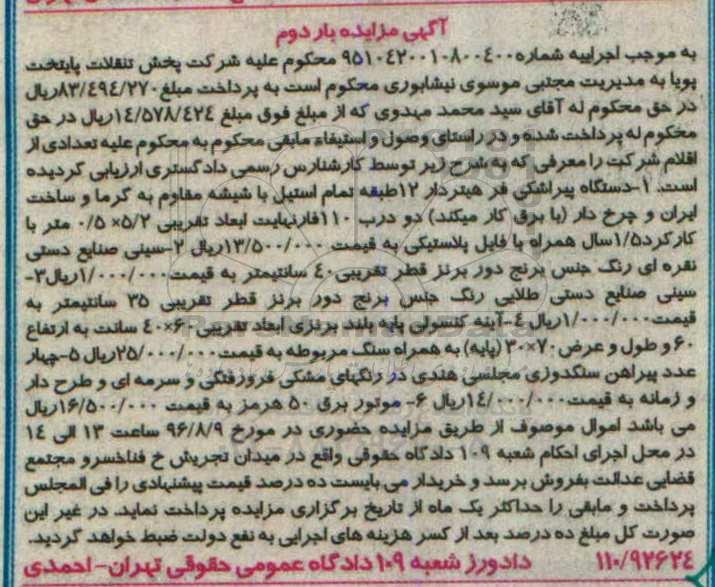 آگهی مزایده بار دوم
به موجب اجراییه شماره ۹۵۱۰۴۲۰۰۱۰۸۰۰۴۰۰ محکوم علیه شرکت پخش تنقلات پایتخت
پویا به مدیریت مجتبی موسوی نیشابوری محکوم است به پرداخت مبلغ ۸۳/۴۹۴/۲۷۰ریال
در حق محکوم له آقای سید محمد مهدوی که از مبلغ فوق مبلغ ۱۴/۵۷۸/۴۲۴ریال در حق
محکوم له پرداخت شده و در راستای وصول و استیفاء مابقی محکوم به محکوم علیه تعدادی از
اقلام شرکت را معرفی که به شرح زیر توسط کارشناس رسمی دادگستری ارزیابی گردیده
است. ۱-دستگاه پیراشکی فر هیتردار ۱۲طبقه تمام استیل با شیشه مقاوم به گرما و ساخت
ایران و چرخ دار (با برق کار میکند) دو درب ۱۱۰فارنهایت ابعاد تقریبی ۵/۲× ۰/۵ متر با
کارکرد۱/۵سال همراه با فایل پلاستیکی به قیمت ۱۳/۵۰۰/۰۰۰ریال ۲-سینی صنایع دستی
نقره ای رنگ جنس برنج دور برنز قطر تقریبی۴۰ سانتیمتر به قیمت۱/۰۰۰/۰۰۰ریال۳-
سینی صنایع دستی طلایی رنگ جنس برنج دور برنز قطر تقریبی ۳۵ سانتیمتر به
قیمت۱/۰۰۰/۰۰۰ریال ۴-آینه کنسولی پایه بلند برنزی ابعاد تقریبی ۶۰×۴۰ سانت به ارتفاع
۶۰ و طول و عرض ۷۰×۳۰ (پایه) به همراه سنگ مربوطه به قیمت۲۵/۰۰۰/۰۰۰ریال ۵-چهار
عدد پیراهن سنگدوزی مجلسی هندی در رنگهای مشکی فرورفتگی و سرمه ای و طرح دار
و زمانه به قیمت۱۴/۰۰۰/۰۰۰ریال ۶- موتور برق ۵۰ هرمز به قیمت ۱۶/۵۰۰/۰۰۰ریال
می باشد اموال موصوف از طریق مزایده حضوری در مورخ ۹۶/۸/۹ ساعت ۱۳ الی ۱۴
در محل اجرای احکام شعبه ۱۰۹ دادگاه حقوقی واقع در میدان تجریش خ فناخسرو مجتمع
قضایی عدالت بفروش برسد و خریدار می بایست ده درصد قیمت پیشنهادی را فی المجلس
پرداخت و مابقی را حداکثر یک ماه از تاریخ برگزاری مزایده پرداخت نماید. در غیر این
صورت کل مبلغ ده درصد بعد از کسر هزینه های اجرایی به نفع دولت ضبط خواهد گردید.
۱۱۰/۹۲۶۲۴ دادورز شعبه ۱۰۹ دادگاه عمومی حقوقی تهران-احمدی